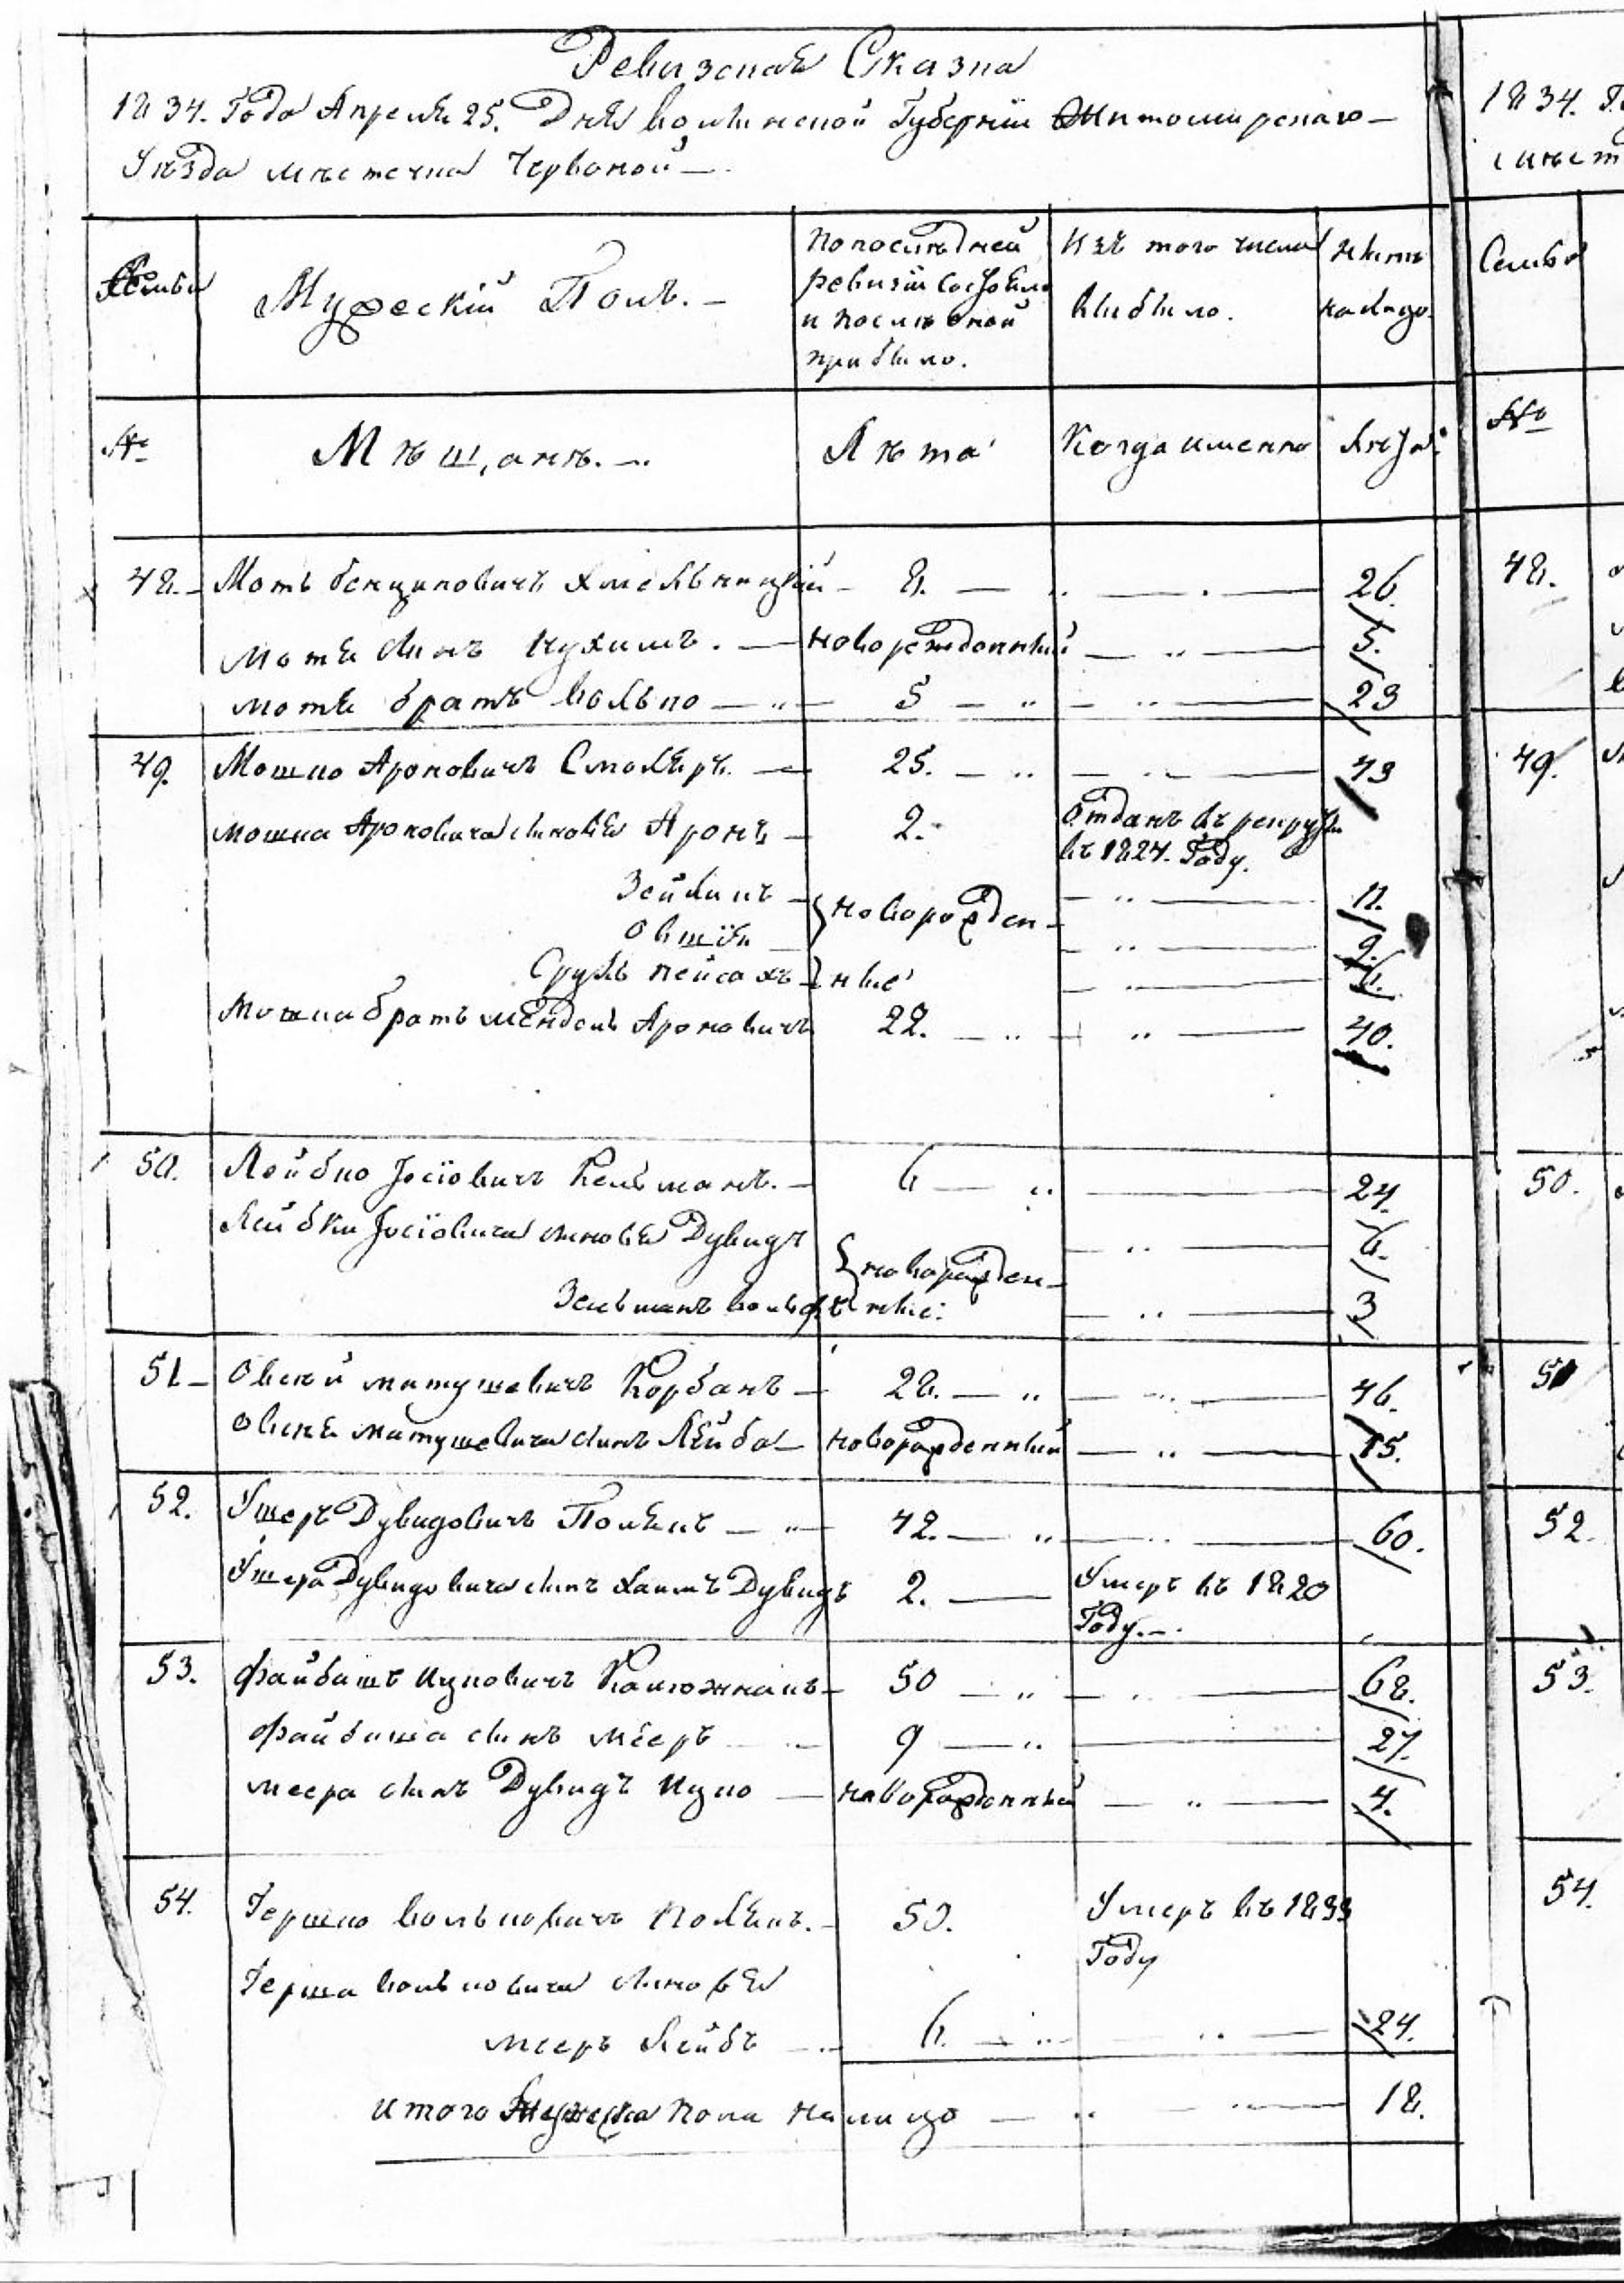 Ревизская Сказка
1834. Года Апреля 25. Дня Волынской Губернiи Житомирскаго
Уѣзда мѣстечка Червоной
1834. Г
Семьи
Мужескiй Полъ.
По послѣдней ревизiи состояло и послѣ оной прибыло.
Изъ того числа выбыло.
Нынѣ на лицо.
Семьи
№
Мѣщанъ.
Лѣта
Когда именно
Лѣта
№
48. Моть Бенционовичъ Хмельницкiй 8. 26. 48.
Мотя сынъ Нухимъ. новорожденный 5.
Мотя братъ Волько 5 23
49. Мошко Ароновичъ Смоляръ. 25. 43 49.
Мошка Ароновича сыновья Аронъ 2. Отданъ въ рекруты
въ 1827. Году.
Зейликъ новорожден- 11.
Овшiя 9.
Сруль Пейсахъ ные
Мошка братъ Мендель Ароновичъ 22. 40.
50. Лейбко Iосiовичъ Кельманъ. 6 24. 50.
Лейбки Iосiовича сыновья Дувидъ новорожден- 6.
Зельманъ Вольфъ ные 3
51. Овсей Матушевичъ Корбанъ 28. 46. 51
Овсея Матушевича сынъ Лейба новорожденный 15.
52. Ушеръ Дувидовичъ Полякъ 42. 60. 52.
Ушера Дувидовича сынъ Хаимъ Дувидъ 2. Умеръ въ 1820
Году.
53. Файбишъ Ицковичъ 50 68. 53.
Файбиша сынъ Мееръ 9 27.
Меера сынъ Дувидъ Ицко новорожденный 4.
54. Гершко Вольковичъ Полякъ. 50. Умеръ въ 1833 54.
Году
Герша Вольковича сыновья
Мееръ Лейбъ 6. 24.
Итого Мужеска пола на лицо 18.